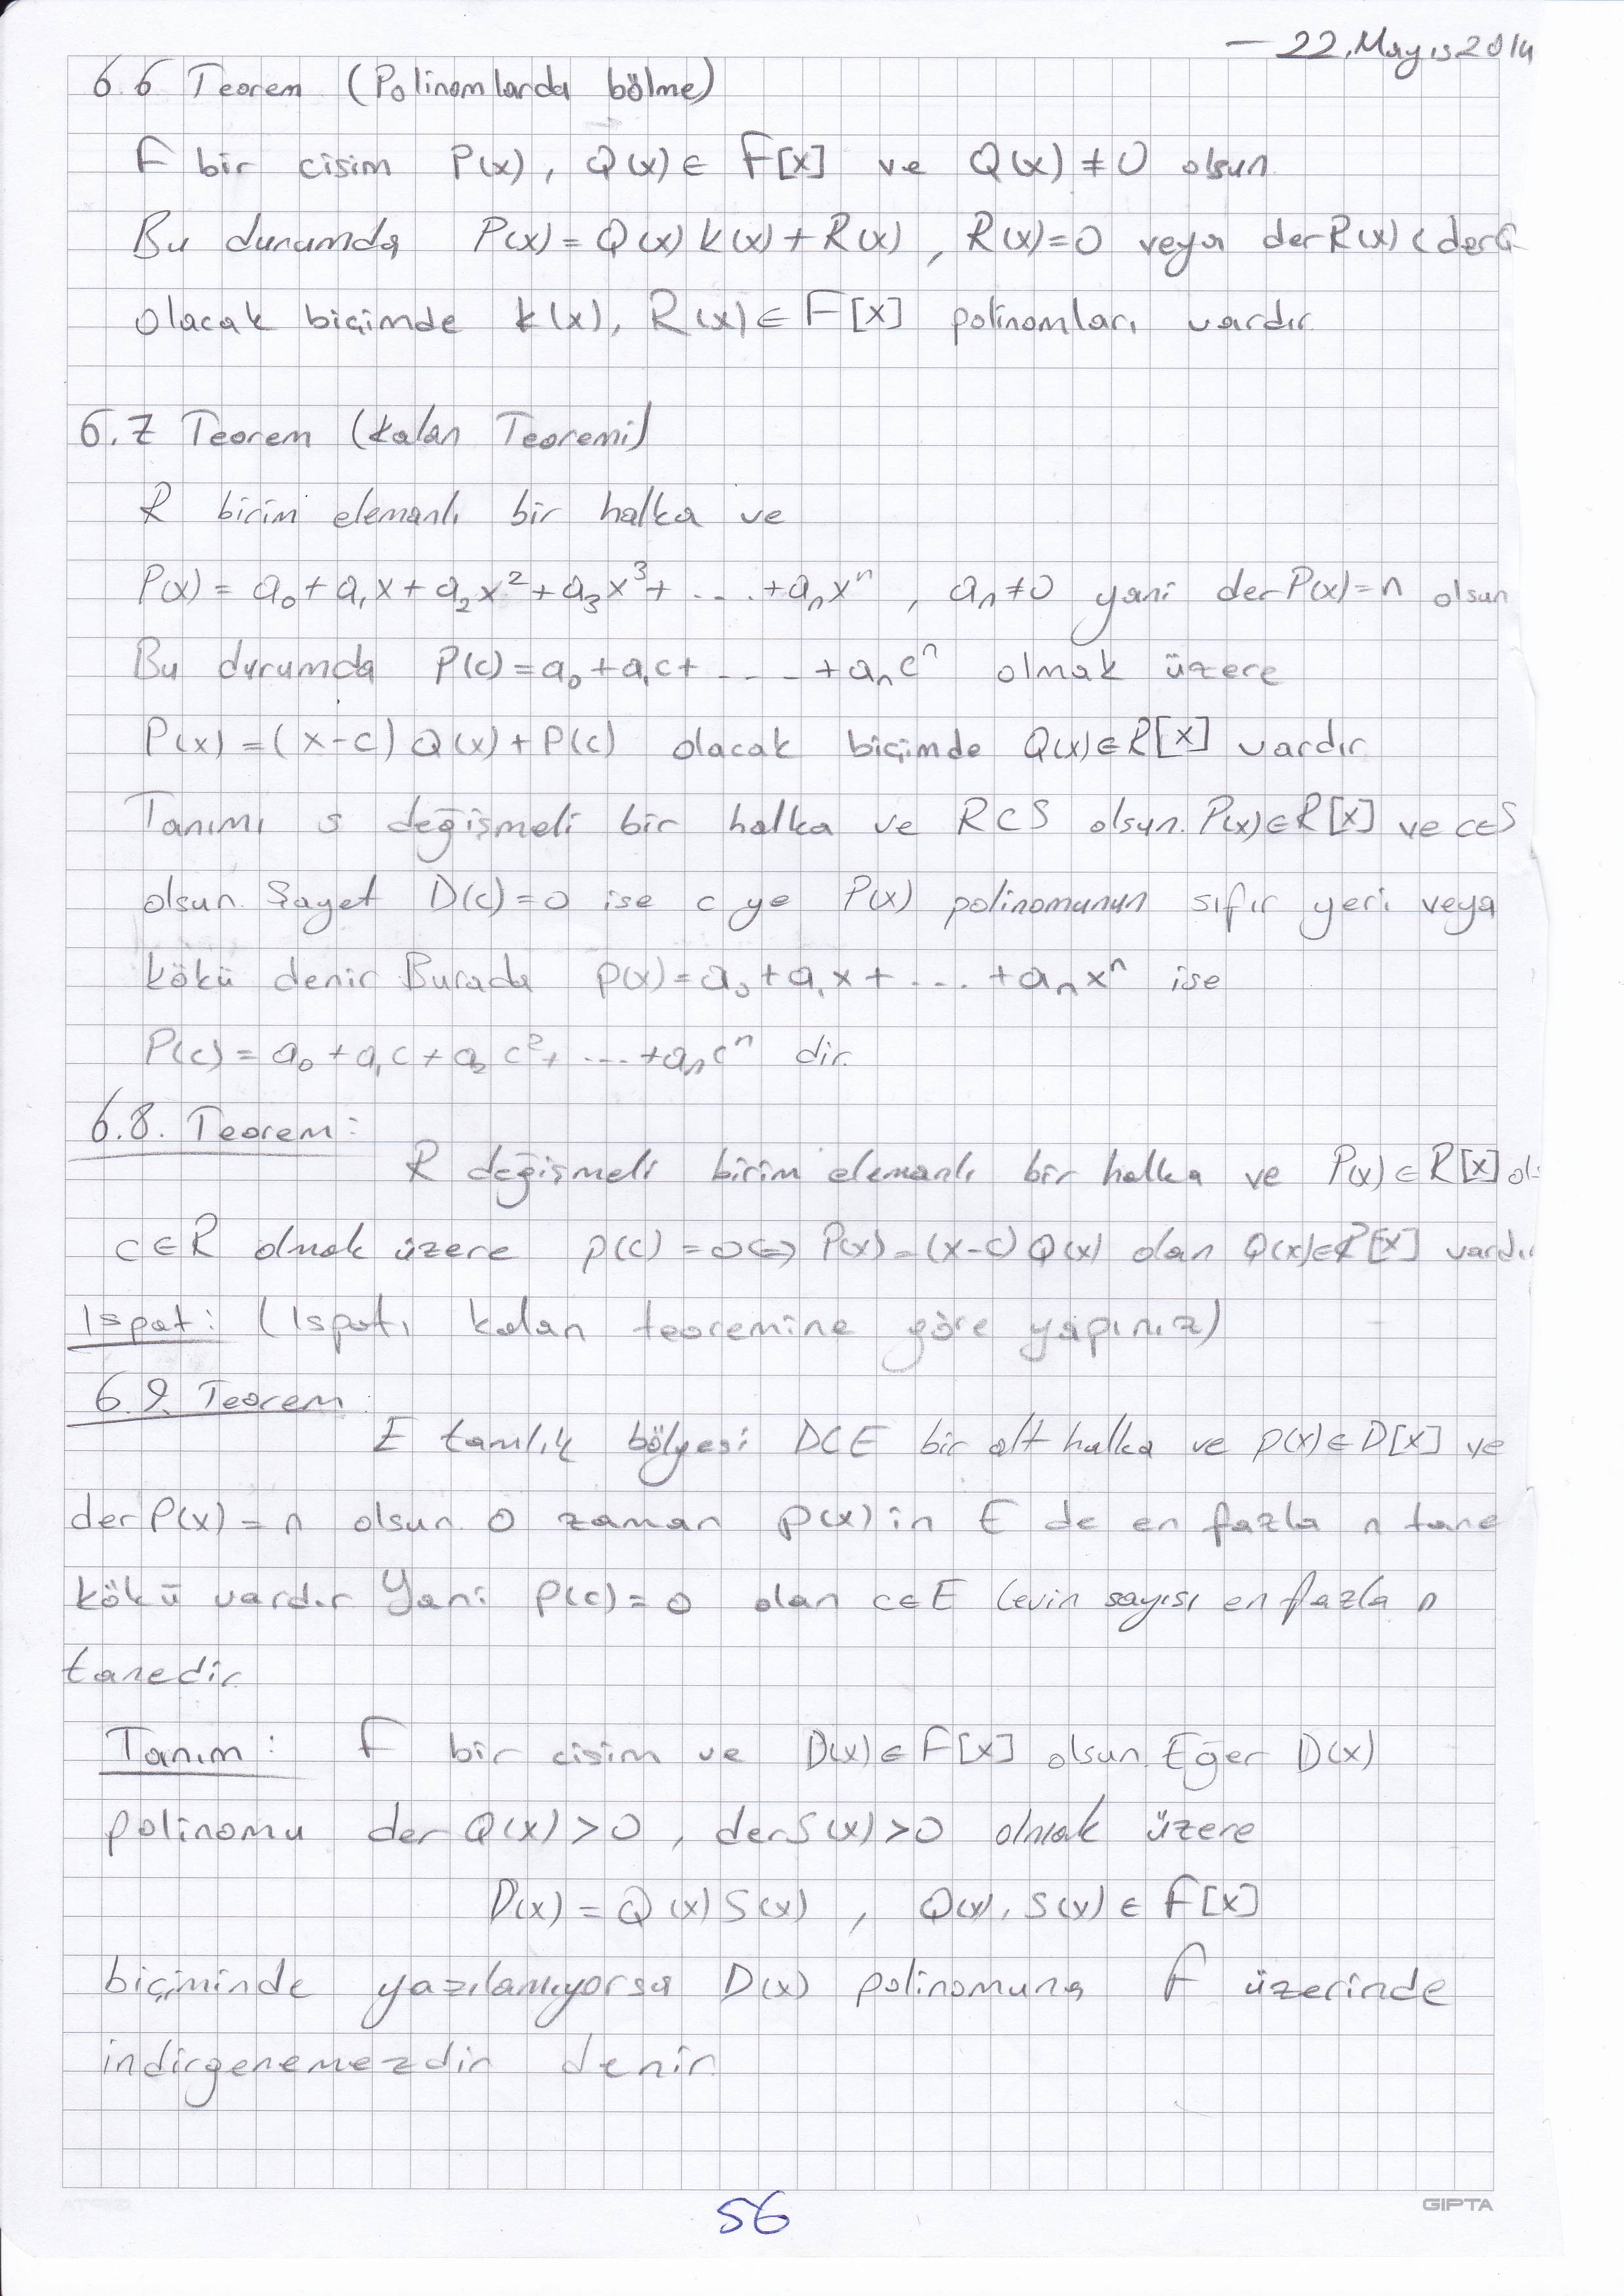 — 22.Mayıs2014
6.6 Teorem (Polinomlarda bölme)
F bir cisim P(x), Q(x) ∈ F[x] ve Q(x) ≠ 0 olsun.
Bu durumda P(x) = Q(x) k(x) + R(x) , R(x)=0 veya der R(x) < der
olacak biçimde k(x), R(x) ∈ F[x] polinomları vardır.
6.7 Teorem (Kalan Teoremi)
R birim elemanlı bir halka ve
P(x) = a₀ + a₁x + a₂x² + a₃x³ + .... + aₙxⁿ , aₙ≠0 yani der P(x)=n olsun
Bu durumda P(c) = a₀ + a₁c + .... + aₙcⁿ olmak üzere
P(x) = (x-c) Q(x) + P(c) olacak biçimde Q(x) ∈ R[x] vardır.
Tanımı S değişmeli bir halka ve R⊂S olsun. P(x) ∈ R[x] ve c∈S
olsun. Şayet D(c)=0 ise c ye P(x) polinomunun sıfır yeri veya
kökü denir Burada p(x) = a₀ + a₁x + .... + aₙxⁿ ise
P(c) = a₀ + a₁c + a₂c² + .... + aₙcⁿ dir.
6.8. Teorem:
R değişmeli birim elemanlı bir halka ve P(x) ∈ R[x]
c∈R olmak üzere p(c) = 0 ⇔ P(x) = (x-c) Q(x) olan Q(x)∈R[x] vardır
Ispat: (Ispatı kalan teoremine göre yapınız)
6.9. Teorem
E tamlık bölgesi D⊂E bir alt halka ve p(x) ∈ D[x] ve
der P(x) = n olsun. O zaman p(x) in E de en fazla n tane
kökü vardır Yani p(c)=0 olan c∈E lerin sayısı en fazla n
tanedir.
Tanım: F bir cisim ve D(x) ∈ F[x] olsun. Eğer D(x)
polinomu der Q(x) > 0 , der S(x) > 0 olmak üzere
D(x) = Q(x) S(x) , Q(x), S(x) ∈ F[x]
biçiminde yazılamıyorsa D(x) polinomuna F üzerinde
indirgenemezdir denir.
56
GIPTA